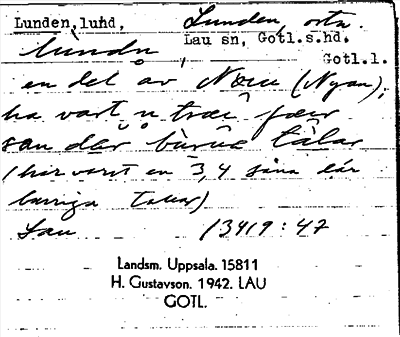 Lunden, lund, Lunden, ortn.
Lau sn, Gotl.s.hd.
Gotl.l.
en del av (Nyan),
ha vart n træi
san där
(har varit en 3, 4 såna där
barriga tallar)
Lau 13419:47
Landsm. Uppsala. 15811
H. Gustavson. 1942. LAU
GOTL.